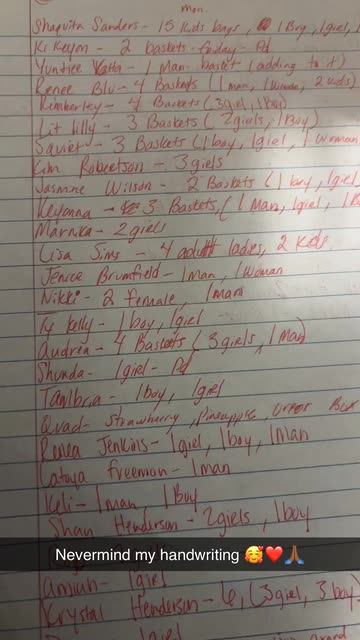 mon.
Shaquita Sanders - 15 Kids bags, 1 Boy, 1 giel, 1
Ki Keyon - 2 baskets - Friday - Pd
Yuntiee Yatta - 1 Man basket (adding to it)
Renee Blu - 4 Baskets (1 man, 1 Woman, 2 kids)
Kimberley - 4 Baskets (3 giel, 1 Boy)
Lit lilly - 3 Baskets (2 giels, 1 Boy)
Savier - 3 Baskets (1 boy, 1 giel, 1 Woman
Kim Robertson - 3 giels
Jasmine Wilson - 2 Baskets (1 boy, 1 giel
Keyonna - 3 Baskets, (1 Man, 1 giel, 1 B
Marnika - 2 giels
Lisa Sims - 4 adult ladies, 2 Kids
Jenice Brumfield - 1 Man, 1 Woman
Nikki - 2 female, 1 man
Ty Kelly - 1 boy, 1 giel
Audrea - 4 Baskets (3 giels, 1 Man)
Shunda - 1 giel - Pd
Tamibria - 1 boy, 1 giel
Quad - Strawberry, pineapple,
Renea Jenkins - 1 giel, 1 boy, 1 Man
Latoya freeman - 1 man
Keli - 1 man 1 Boy
Shan Henderson - 2 giels, 1 boy
Nevermind my handwriting 🥰❤️🙏🏾
amiyah - 1 giel
Krystal Henderson - 6, (3 giel, 3 boy
1 giel